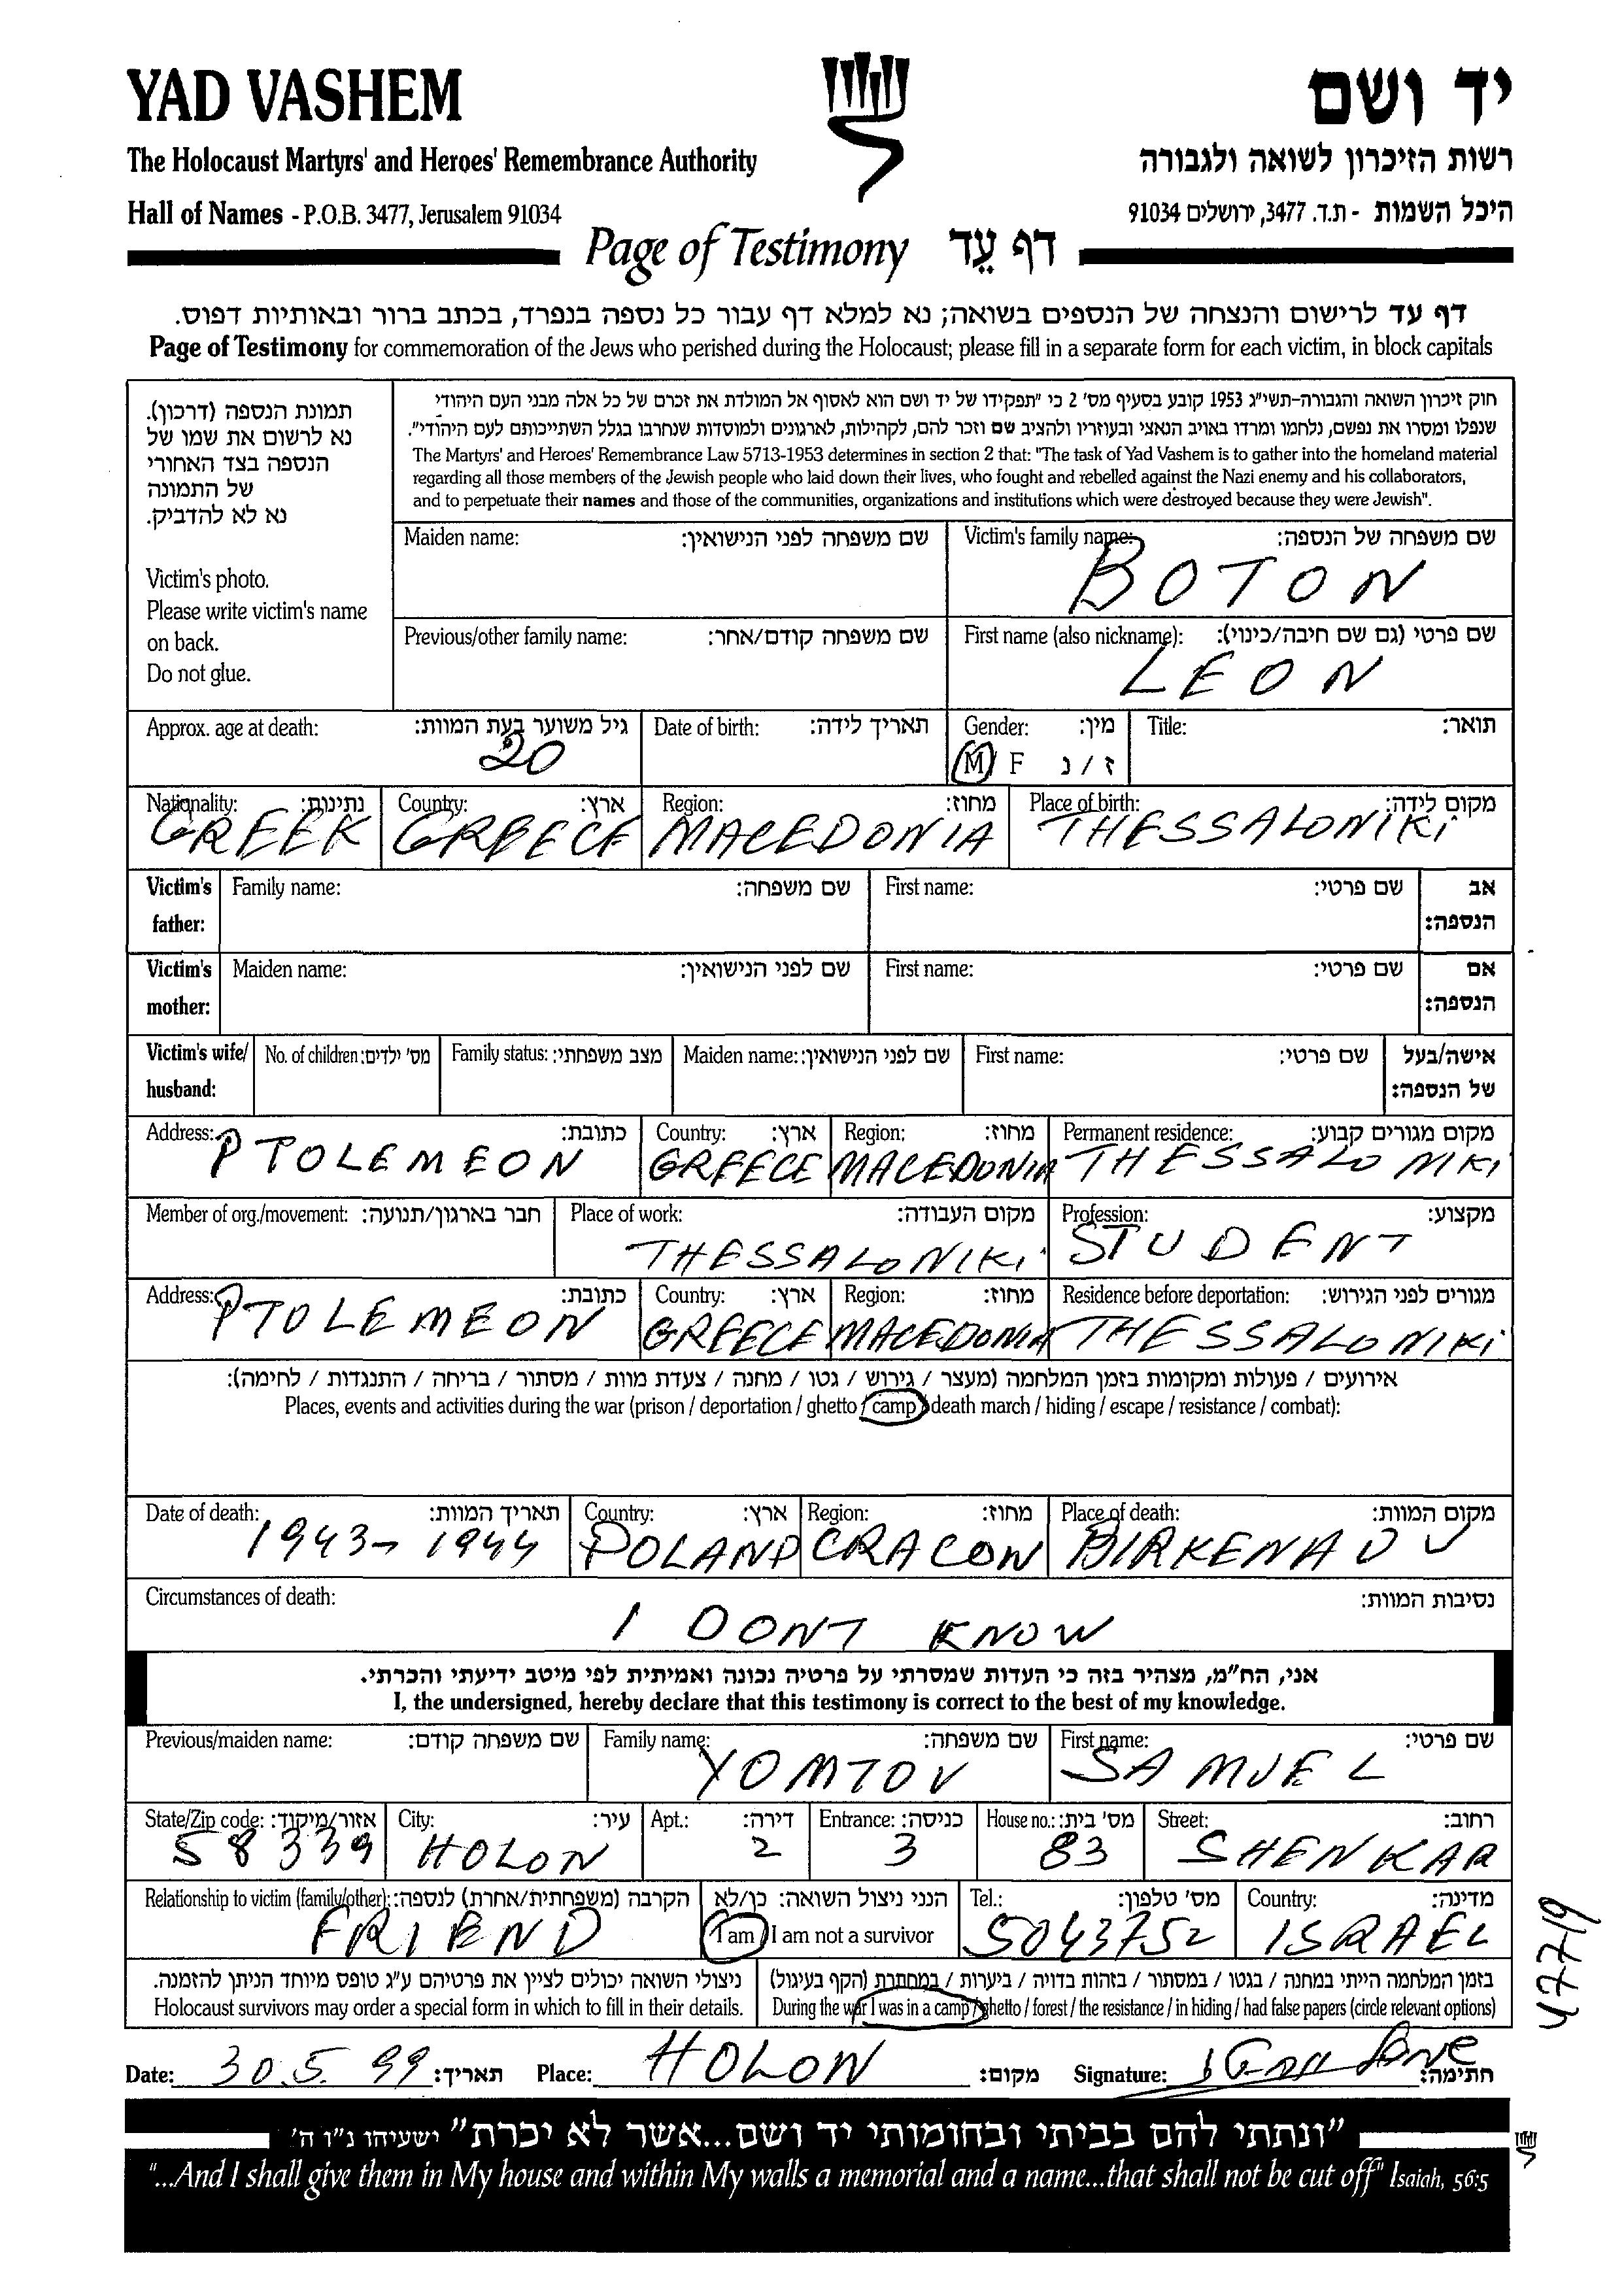 YAD VASHEM
יד ושם
The Holocaust Martyrs' and Heroes' Remembrance Authority
רשות הזיכרון לשואה ולגבורה
Hall of Names - P.O.B. 3477, Jerusalem 91034
היכל השמות - ת.ד. 3477, ירושלים 91034
Page of Testimony דף עֵד
דף עד לרישום והנצחה של הנספים בשואה; נא למלא דף עבור כל נספה בנפרד, בכתב ברור ובאותיות דפוס.
Page of Testimony for commemoration of the Jews who perished during the Holocaust; please fill in a separate form for each victim, in block capitals
תמונת הנספה (דרכון).
נא לרשום את שמו של
הנספה בצד האחורי
של התמונה
נא לא להדביק.
Victim's photo.
Please write victim's name
on back.
Do not glue.
חוק זיכרון השואה והגבורה-תשי"ג 1953 קובע בסעיף מס' 2 כי "תפקידו של יד ושם הוא לאסוף אל המולדת את זכרם של כל אלה מבני העם היהודי
שנפלו ומסרו את נפשם, נלחמו ומרדו באויב הנאצי ובעוזריו ולהציב שם וזכר להם, לקהילות, לארגונים ולמוסדות שנחרבו בגלל השתייכותם לעם היהודי".
The Martyrs' and Heroes' Remembrance Law 5713-1953 determines in section 2 that: "The task of Yad Vashem is to gather into the homeland material
regarding all those members of the Jewish people who laid down their lives, who fought and rebelled against the Nazi enemy and his collaborators,
and to perpetuate their names and those of the communities, organizations and institutions which were destroyed because they were Jewish".
Maiden name: שם משפחה לפני הנישואין: Victim's family name: שם משפחה של הנספה:
BOTON
Previous/other family name: שם משפחה קודם/אחר: First name (also nickname): שם פרטי (גם שם חיבה/כינוי):
LEON
Approx. age at death: גיל משוער בעת המוות: Date of birth: תאריך לידה: Gender: מין: Title: תואר:
20 M / F ז / נ
Nationality: נתינות: Country: ארץ: Region: מחוז: Place of birth: מקום לידה:
GREEK GREECE MACEDONIA THESSALONIKI
Victim's father: Family name: שם משפחה: First name: שם פרטי: אב הנספה:
Victim's mother: Maiden name: שם לפני הנישואין: First name: שם פרטי: אם הנספה:
Victim's wife/ husband: No. of children: מס' ילדים: Family status: מצב משפחתי: Maiden name: שם לפני הנישואין: First name: שם פרטי: אישה/בעל של הנספה:
Address: כתובת: Country: ארץ: Region: מחוז: Permanent residence: מקום מגורים קבוע:
PTOLEMEON GREECE MACEDONIA THESSALONIKI
Member of org./movement: חבר בארגון/תנועה: Place of work: מקום העבודה: Profession: מקצוע:
THESSALONIKI STUDENT
Address: כתובת: Country: ארץ: Region: מחוז: Residence before deportation: מגורים לפני הגירוש:
PTOLEMEON GREECE MACEDONIA THESSALONIKI
אירועים / פעולות ומקומות בזמן המלחמה (מעצר / גירוש / גטו / מחנה / צעדת מוות / מסתור / בריחה / התנגדות / לחימה):
Places, events and activities during the war (prison / deportation / ghetto / camp / death march / hiding / escape / resistance / combat):
Date of death: תאריך המוות: Country: ארץ: Region: מחוז: Place of death: מקום המוות:
1943-1944 POLAND CRACOW BIRKENAU
Circumstances of death: נסיבות המוות:
I DONT KNOW
אני, הח"מ, מצהיר בזה כי העדות שמסרתי על פרטיה נכונה ואמיתית לפי מיטב ידיעתי והכרתי.
I, the undersigned, hereby declare that this testimony is correct to the best of my knowledge.
Previous/maiden name: שם משפחה קודם: Family name: שם משפחה: First name: שם פרטי:
YOMTOV SAMUEL
State/Zip code: אזור/מיקוד: City: עיר: Apt.: דירה: Entrance: כניסה: House no.: מס' בית: Street: רחוב:
58339 HOLON 2 3 83 SHENKAR
Relationship to victim (family/other): הקרבה (משפחתית/אחרת) לנספה: הנני ניצול השואה: כן/לא Tel.: מס' טלפון: Country: מדינה:
FRIEND I am / I am not a survivor 5043752 ISRAEL
ניצולי השואה יכולים לציין את פרטיהם ע"ג טופס מיוחד הניתן להזמנה. בזמן המלחמה הייתי במחנה / בגטו / במסתור / בזהות בדויה / ביערות / במחתרת (הקף בעיגול)
Holocaust survivors may order a special form in which to fill in their details. During the war I was in a camp / ghetto / forest / the resistance / in hiding / had false papers (circle relevant options)
Date: 30.5.99 תאריך: Place: HOLON מקום: Signature: חתימה:
47719
"ונתתי להם בביתי ובחומותי יד ושם...אשר לא יכרת" ישעיהו נ"ו ה'
"...And I shall give them in My house and within My walls a memorial and a name...that shall not be cut off" Isaiah, 56:5